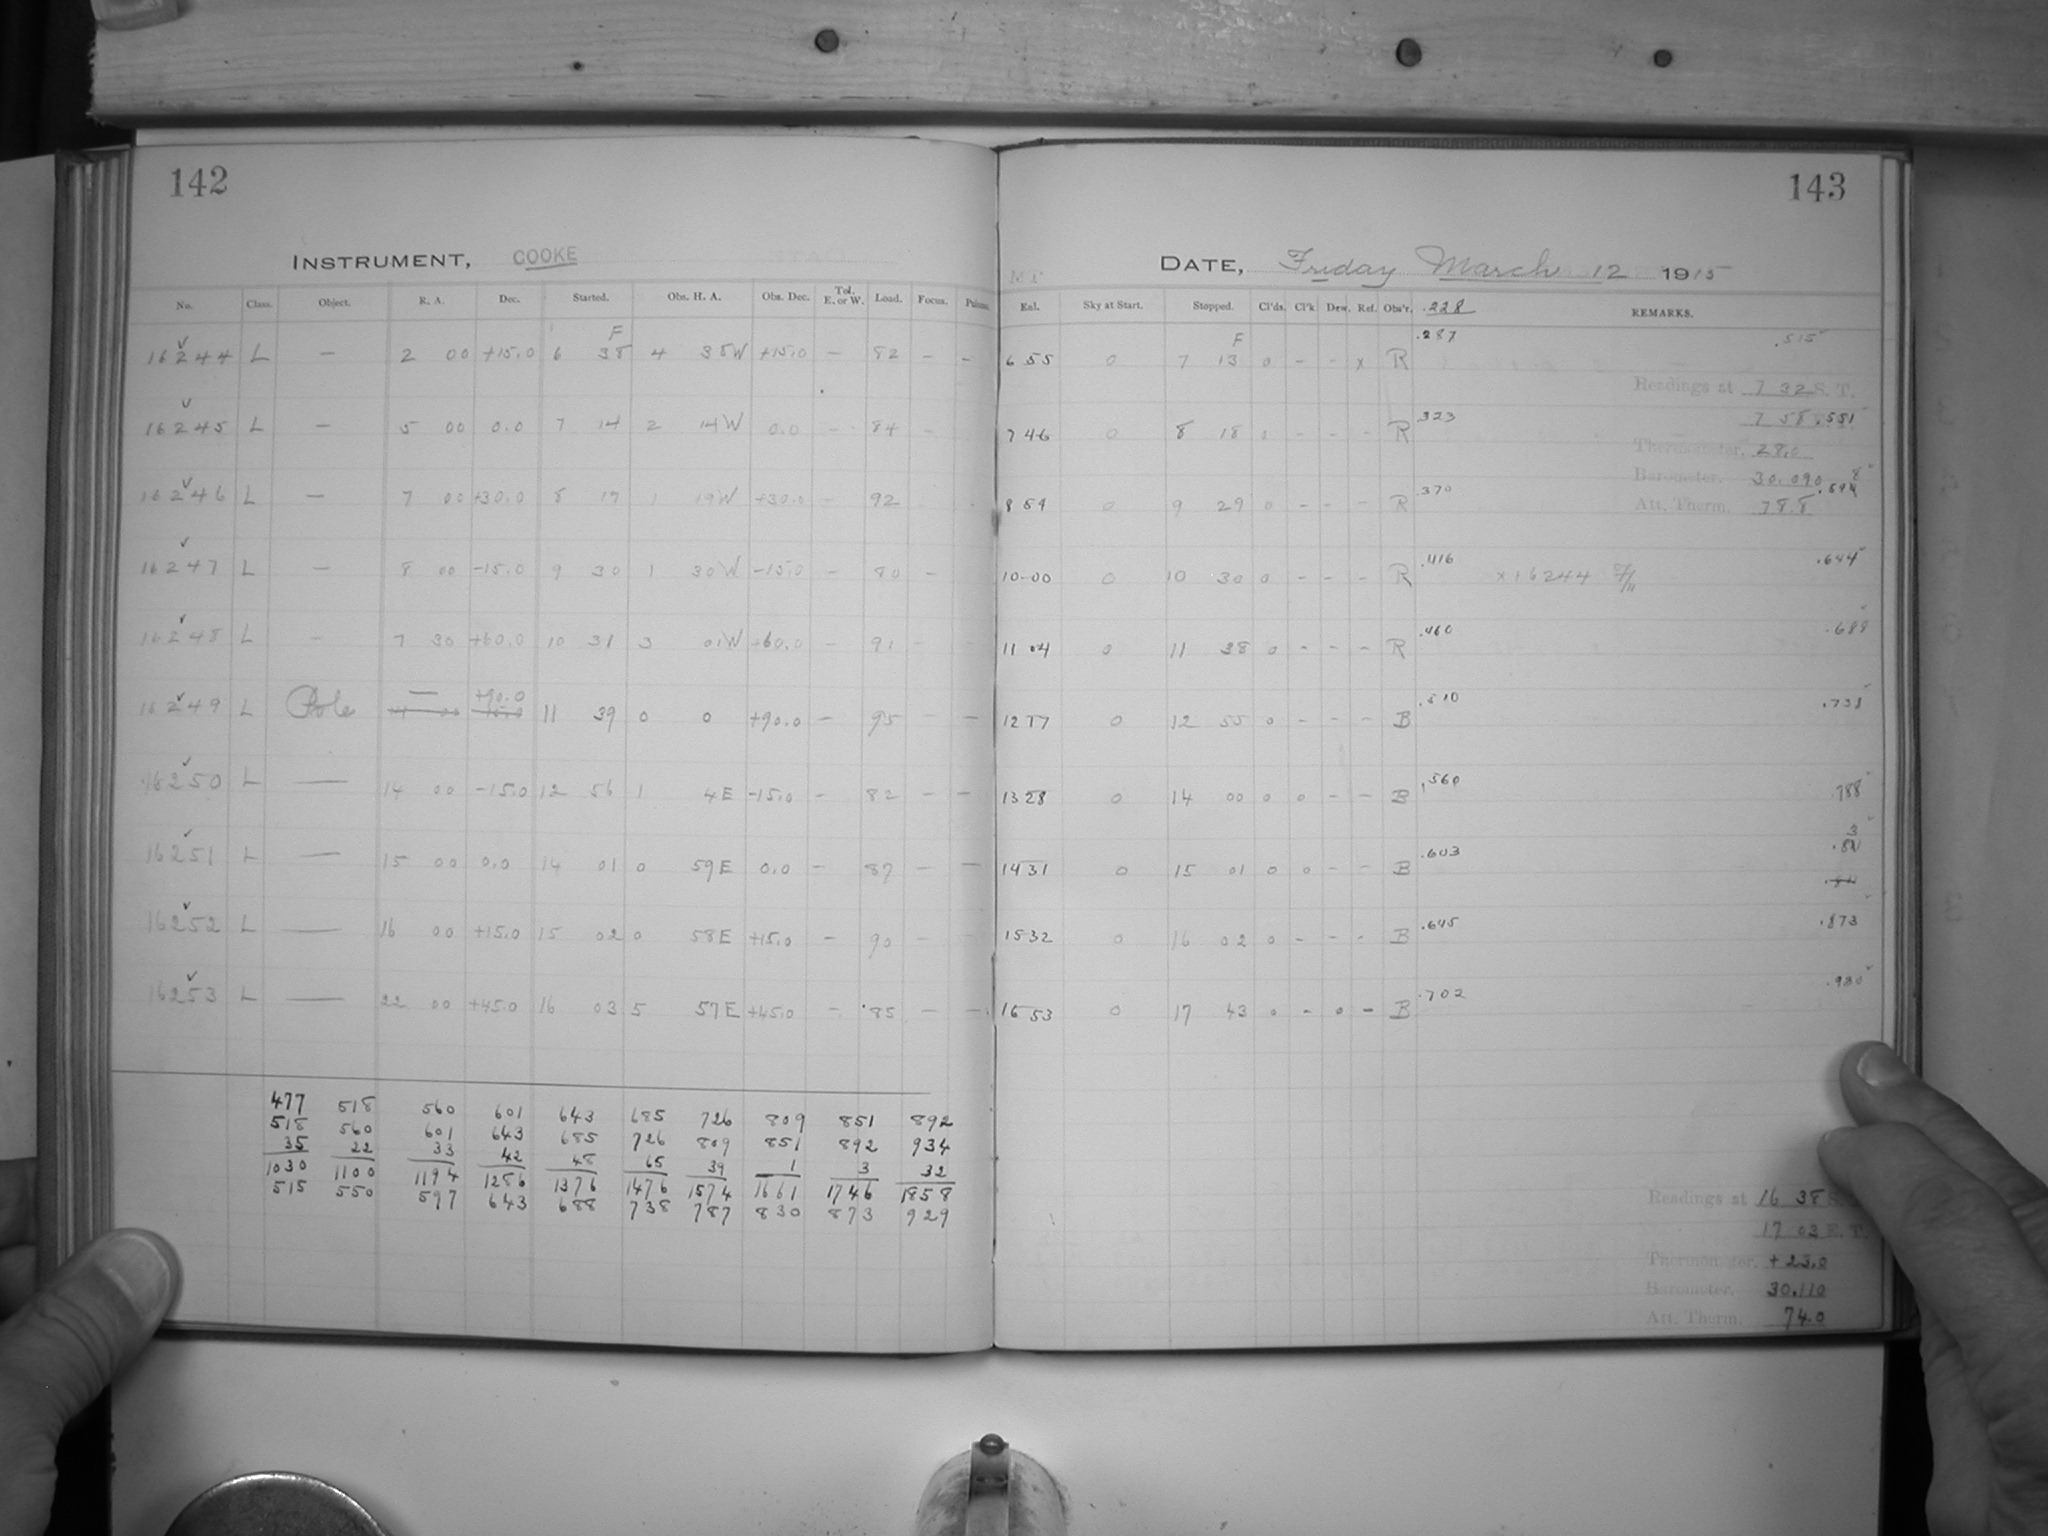 142
INSTRUMENT, COOKE
No. Class. Object. R. A. Dec. Started. Obs. H. A. Obs. Dec. Tel. E. or W. Load. Focus.
F
16244 L — 2 00 +15.0 6 38 4 38W +15.0 — 82 – –
16245 L — 5 00 0.0 7 14 2 14W 0.0 – 84 –
16246 L — 7 00 +30.0 8 17 1 19W +30.0 – 92
16247 L — 8 00 -15.0 9 30 1 30W -15.0 – 80 –
16248 L – 7 30 +60.0 10 31 3 01W +60.0 – 91 –
16249 L Pole — +90.0 11 39 0 0 +90.0 – 95 – –
16250 L — 14 00 -15.0 12 56 1 4E -15.0 – 82 – –
16251 L — 15 00 0.0 14 01 0 59E 0.0 – 87 – –
16252 L — 16 00 +15.0 15 02 0 58E +15.0 – 90 –
16253 L — 22 00 +45.0 16 03 5 57E +45.0 – 85 – –
477 518 560 601 643 685 726 809 851 892
518 560 601 643 685 726 809 851 892 934
35 22 33 42 48 65 39 1 3 32
1030 1100 1194 1286 1376 1476 1574 1661 1746 1858
515 550 597 643 688 738 787 830 873 929
143
DATE, Friday March 12 1915
Sky at Start. Stopped. Cl'ds. Cl'k Dew. Ref. Obs'r. .228 REMARKS.
F .287 .515
6 55 0 7 13 0 – – x R
Readings at 7 32 S. T.
.323 7 58 .551
7 46 0 8 18 0 – – – R
Thermometer. 28.0
Barometer. 30.090
.370
8 54 0 9 29 0 – – – R
Att. Therm. 78.8
.416 .644
10-00 0 10 30 0 – – – R x 16244
.460 .688
11 04 0 11 38 0 – – – R
.510 .738
12 17 0 12 55 0 – – – B
.560 .788
13 28 0 14 00 0 0 – – B
.603
14 31 0 15 01 0 0 – – B
.645 .873
15 32 0 16 02 0 – – – B
.702 .930
16 53 0 17 43 0 – 0 – B
Readings at 16 38 S.
17 03 E. T.
Thermometer. +23.0
Barometer. 30.110
Att. Therm. 74.0